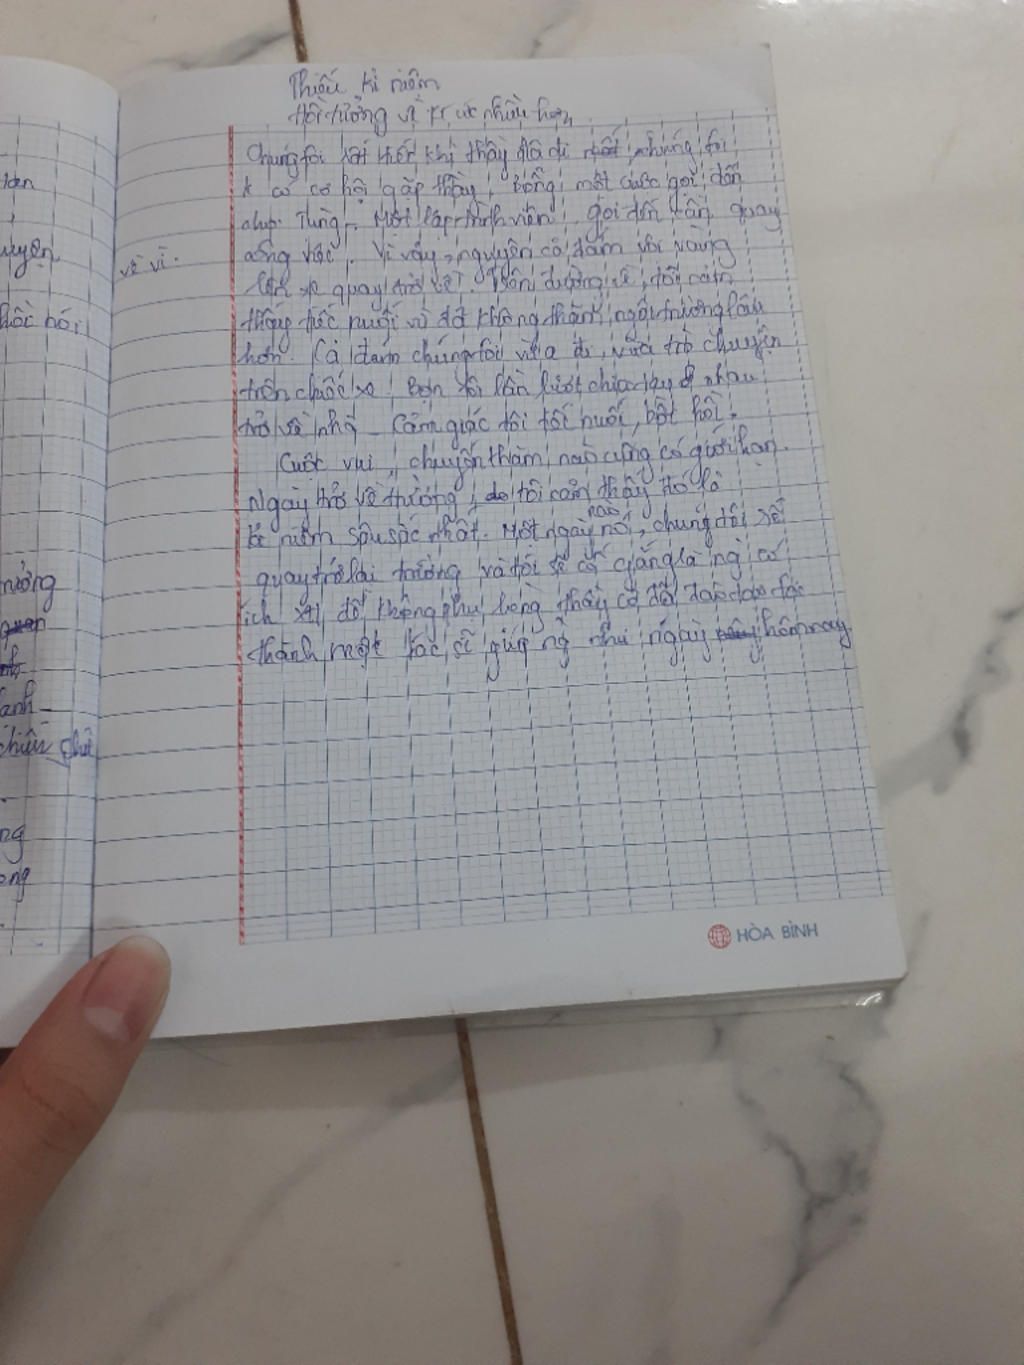 Thiếu kỉ niệm
Hồi tưởng về kí ức nhiều hơn
Chúng tôi rất tiếc khi thầy đã đi mất, nhưng tôi
k có cơ hội gặp thầy. Bỗng một cuộc gọi đến
Tùng - Một lập trình viên, gọi đến cần quay
công việc. Vì vậy, nguyên cả đám vội vàng
lên xe quay trở về. Trên đường về, tôi cảm
thấy tiếc nuối vì đã không thăm ngôi trường lâu
hơn. Cả đám chúng tôi vừa đi, vừa trò chuyện
trên chiếc xe. Bọn tôi lần lượt chia tay nhau
trở về nhà. Cảm giác tôi tiếc nuối, bồi hồi.
Cuộc vui, chuyến thăm nào cũng có giới hạn.
Ngày trở về trường, do tôi cảm thấy đó là
kỉ niệm sâu sắc nhất. Một ngày nào nó, chúng tôi sẽ
quay trở lại trường và tôi sẽ cố gắng là ng có
ích XH, để không phụ lòng thầy cô đã đào tạo
thành một bác sĩ giúp ng như ngày hôm nay
vẽ vì.
uyện
hốc hói
ưởng
anh
chiều phút
ng
ong
HÒA BÌNH